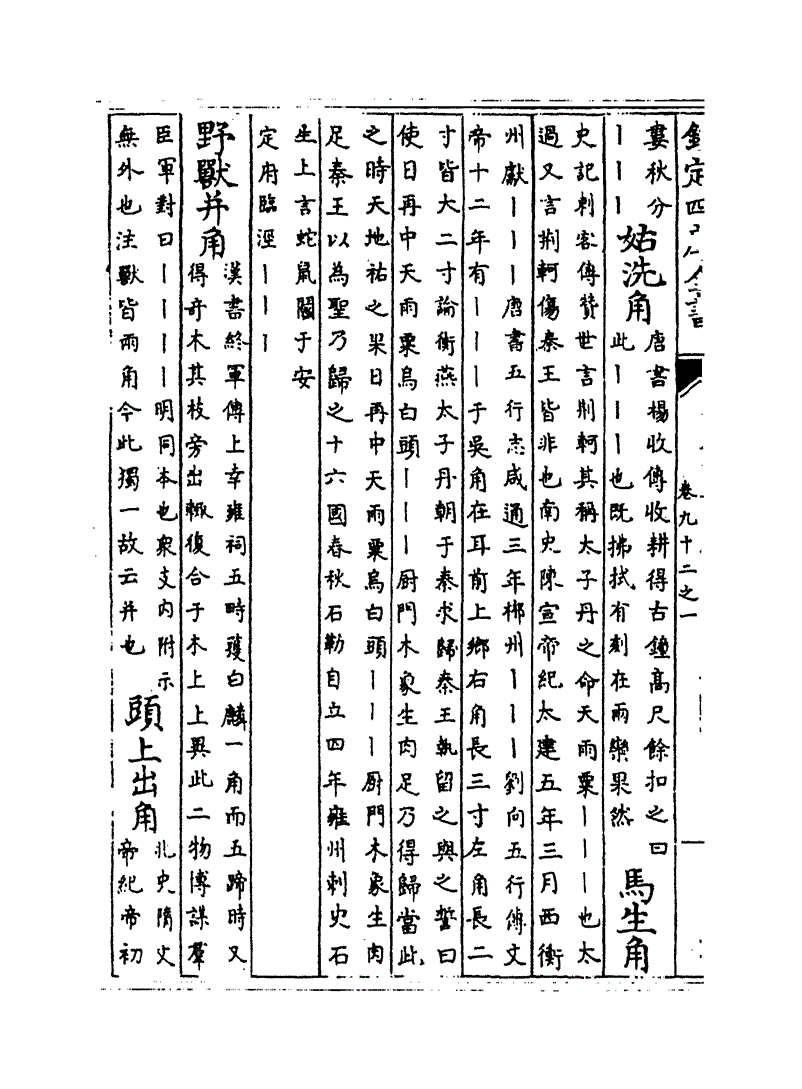 欽定四庫全書
卷九十二之一
婁秋分
丨丨丨
姑洗角
唐書楊收傳收耕得古鐘高尺餘扣之曰
此丨丨丨也既拂拭有刻在兩欒果然
馬生角
史記刺客傳贊世言荆軻其稱太子丹之命天雨粟丨丨丨也太
過又言荆軻傷秦王皆非也南史陳宣帝紀太建五年三月西衡
州獻丨丨丨唐書五行志咸通三年郴州丨丨丨劉向五行傳文
帝十二年有丨丨丨于吳角在耳前上鄉右角長三寸左角長二
寸皆大二寸論衡燕太子丹朝于秦求歸秦王執留之與之誓曰
使日再中天雨粟烏白頭丨丨丨厨門木象生肉足乃得歸當此
之時天地祐之果日再中天雨粟烏白頭丨丨丨厨門木象生肉
足秦王以為聖乃歸之十六國春秋石勒自立四年雍州刺史石
坐上言蛇鼠鬭于安
定府臨涇丨丨丨
野獸并角
漢書終軍傳上幸雍祠五畤獲白麟一角而五蹄時又
得奇木其枝旁出輒復合于木上上異此二物博謀羣
臣軍對曰丨丨丨丨明同本也衆支内附示
無外也注獸皆兩角今此獨一故云并也
頭上出角
北史隋文
帝紀帝初